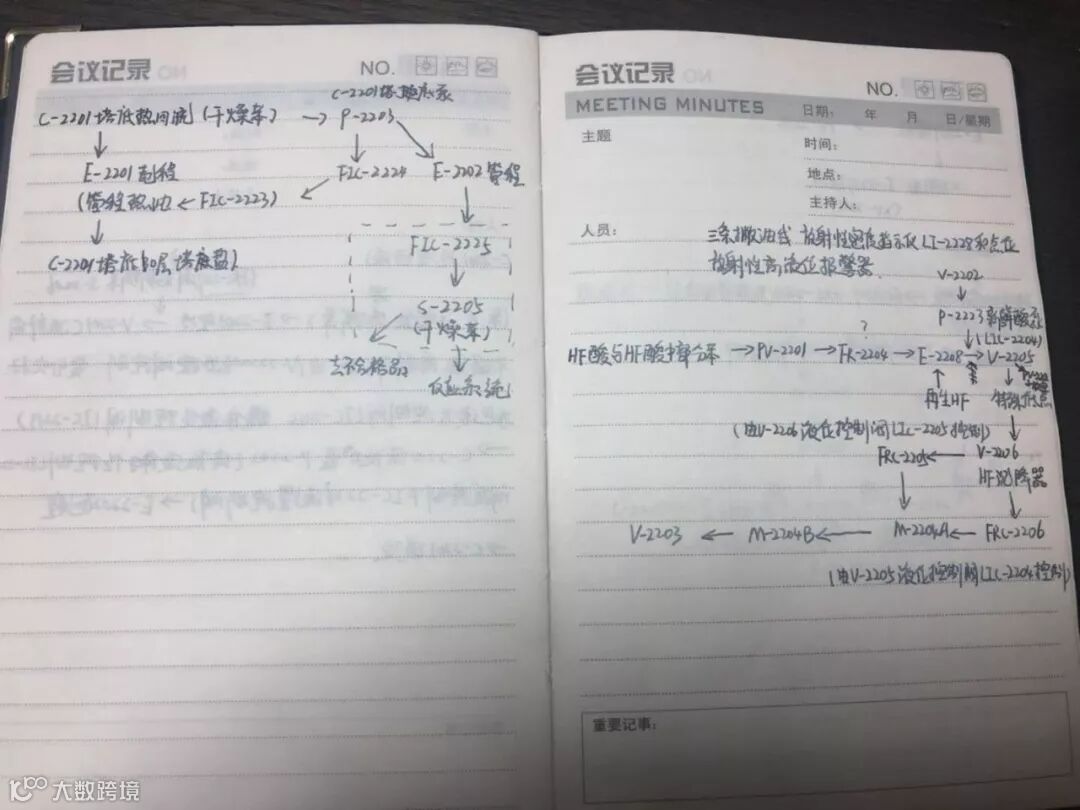 会议记录
NO.
C-2201塔顶底泵
C-2201塔底热回流(干燥苯) → P-2203
E-2201壳程
FIC-2224
E-2202管程
(管程 ← FIC-2223)
FIC-2225
C-2201塔底
S-2205
(干燥苯)
去不合格品
反应系统
会议记录
NO.
MEETING MINUTES
日期: 年 月 日/星期
主题
时间:
地点:
主持人:
人员:
三条 放射性密度指示仪LI-2228和点位
放射性高液位报警器
V-2202
P-2223
?
(LIC-2204)
HF酸与HF酸 → PV-2201 → FR-2204 → E-2208 → V-2205
再生HF
(由V-2206液位控制阀LIC-2205控制)
FRC-2205 ← V-2206
HF沉降器
V-2203 ← M-2204B ← M-2204A ← FRC-2206
(由V-2205液位控制阀LIC-2204控制)
重要记事:
大数跨境